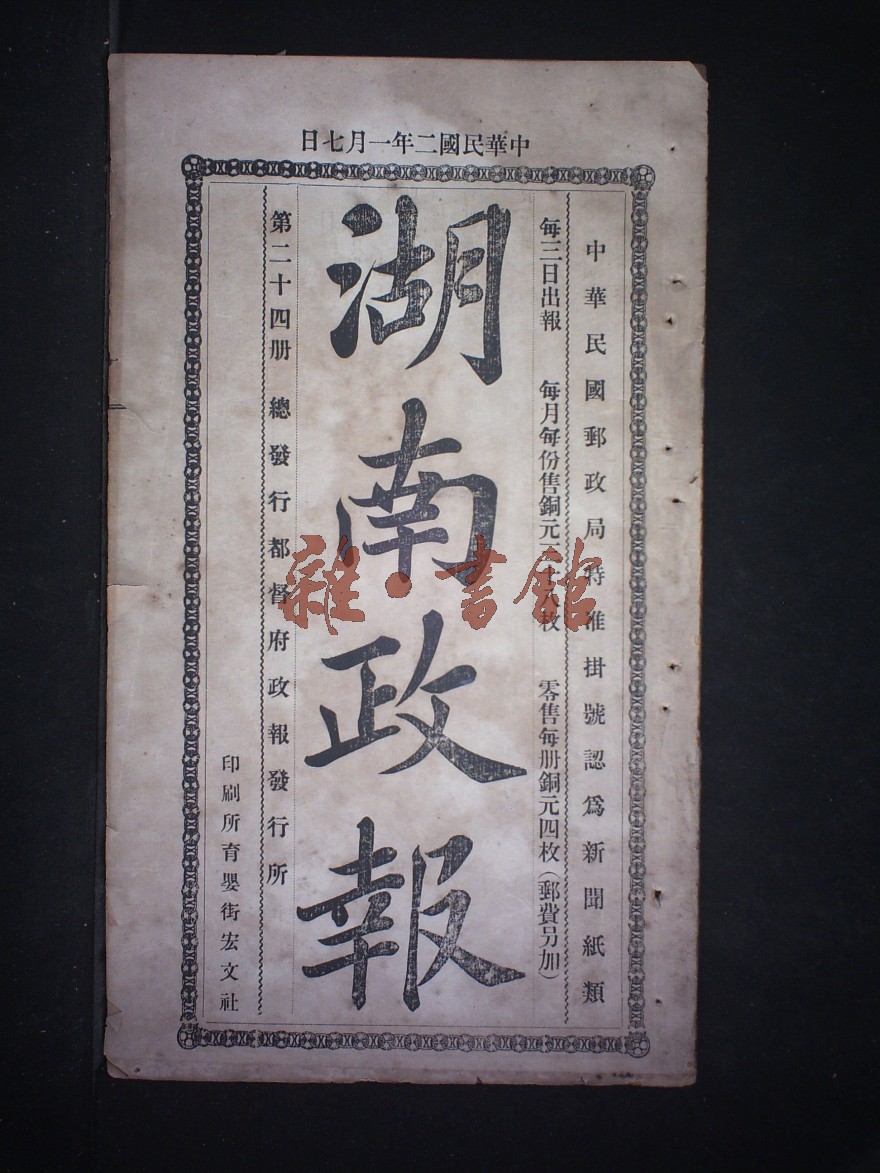 中華民國二年一月七日
中華民國郵政局特准掛號認爲新聞紙類
每三日出報 每月每份售銅元三十八枚 零售每册銅元四枚（郵費另加）
湖南政報
第二十四册 總發行都督府政報發行所
印刷所育嬰街宏文社
雜·書館